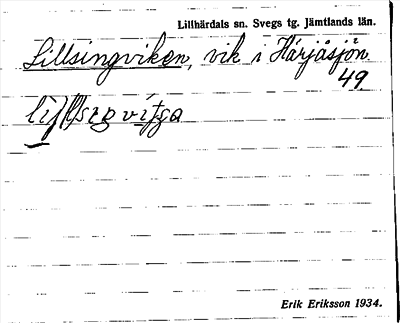 Lillhärdals sn. Svegs tg. Jämtlands län.
Lillsingviken, vik i Härjåsjön.
49
Erik Eriksson 1934.